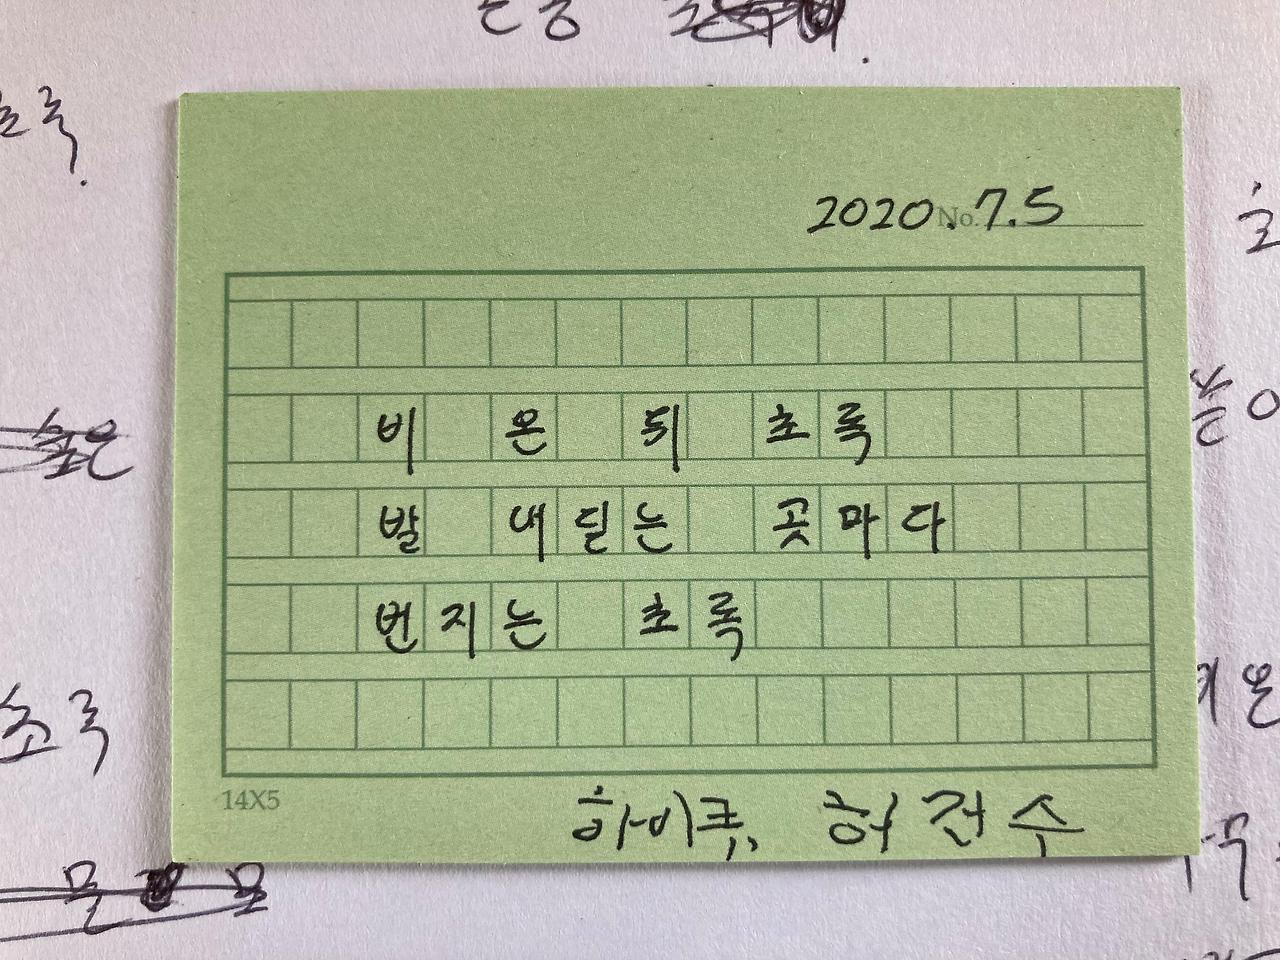 2020. No. 7.5
비 온 뒤 초록
발 내딛는 곳마다
번지는 초록
14X5
하이쿠, 허건수
초록